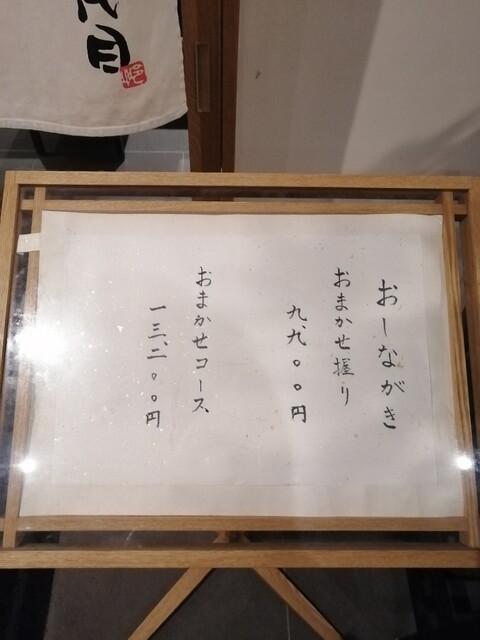 おしながき
おまかせ握り
九、九〇〇円
おまかせコース
一三、二〇〇円
代目